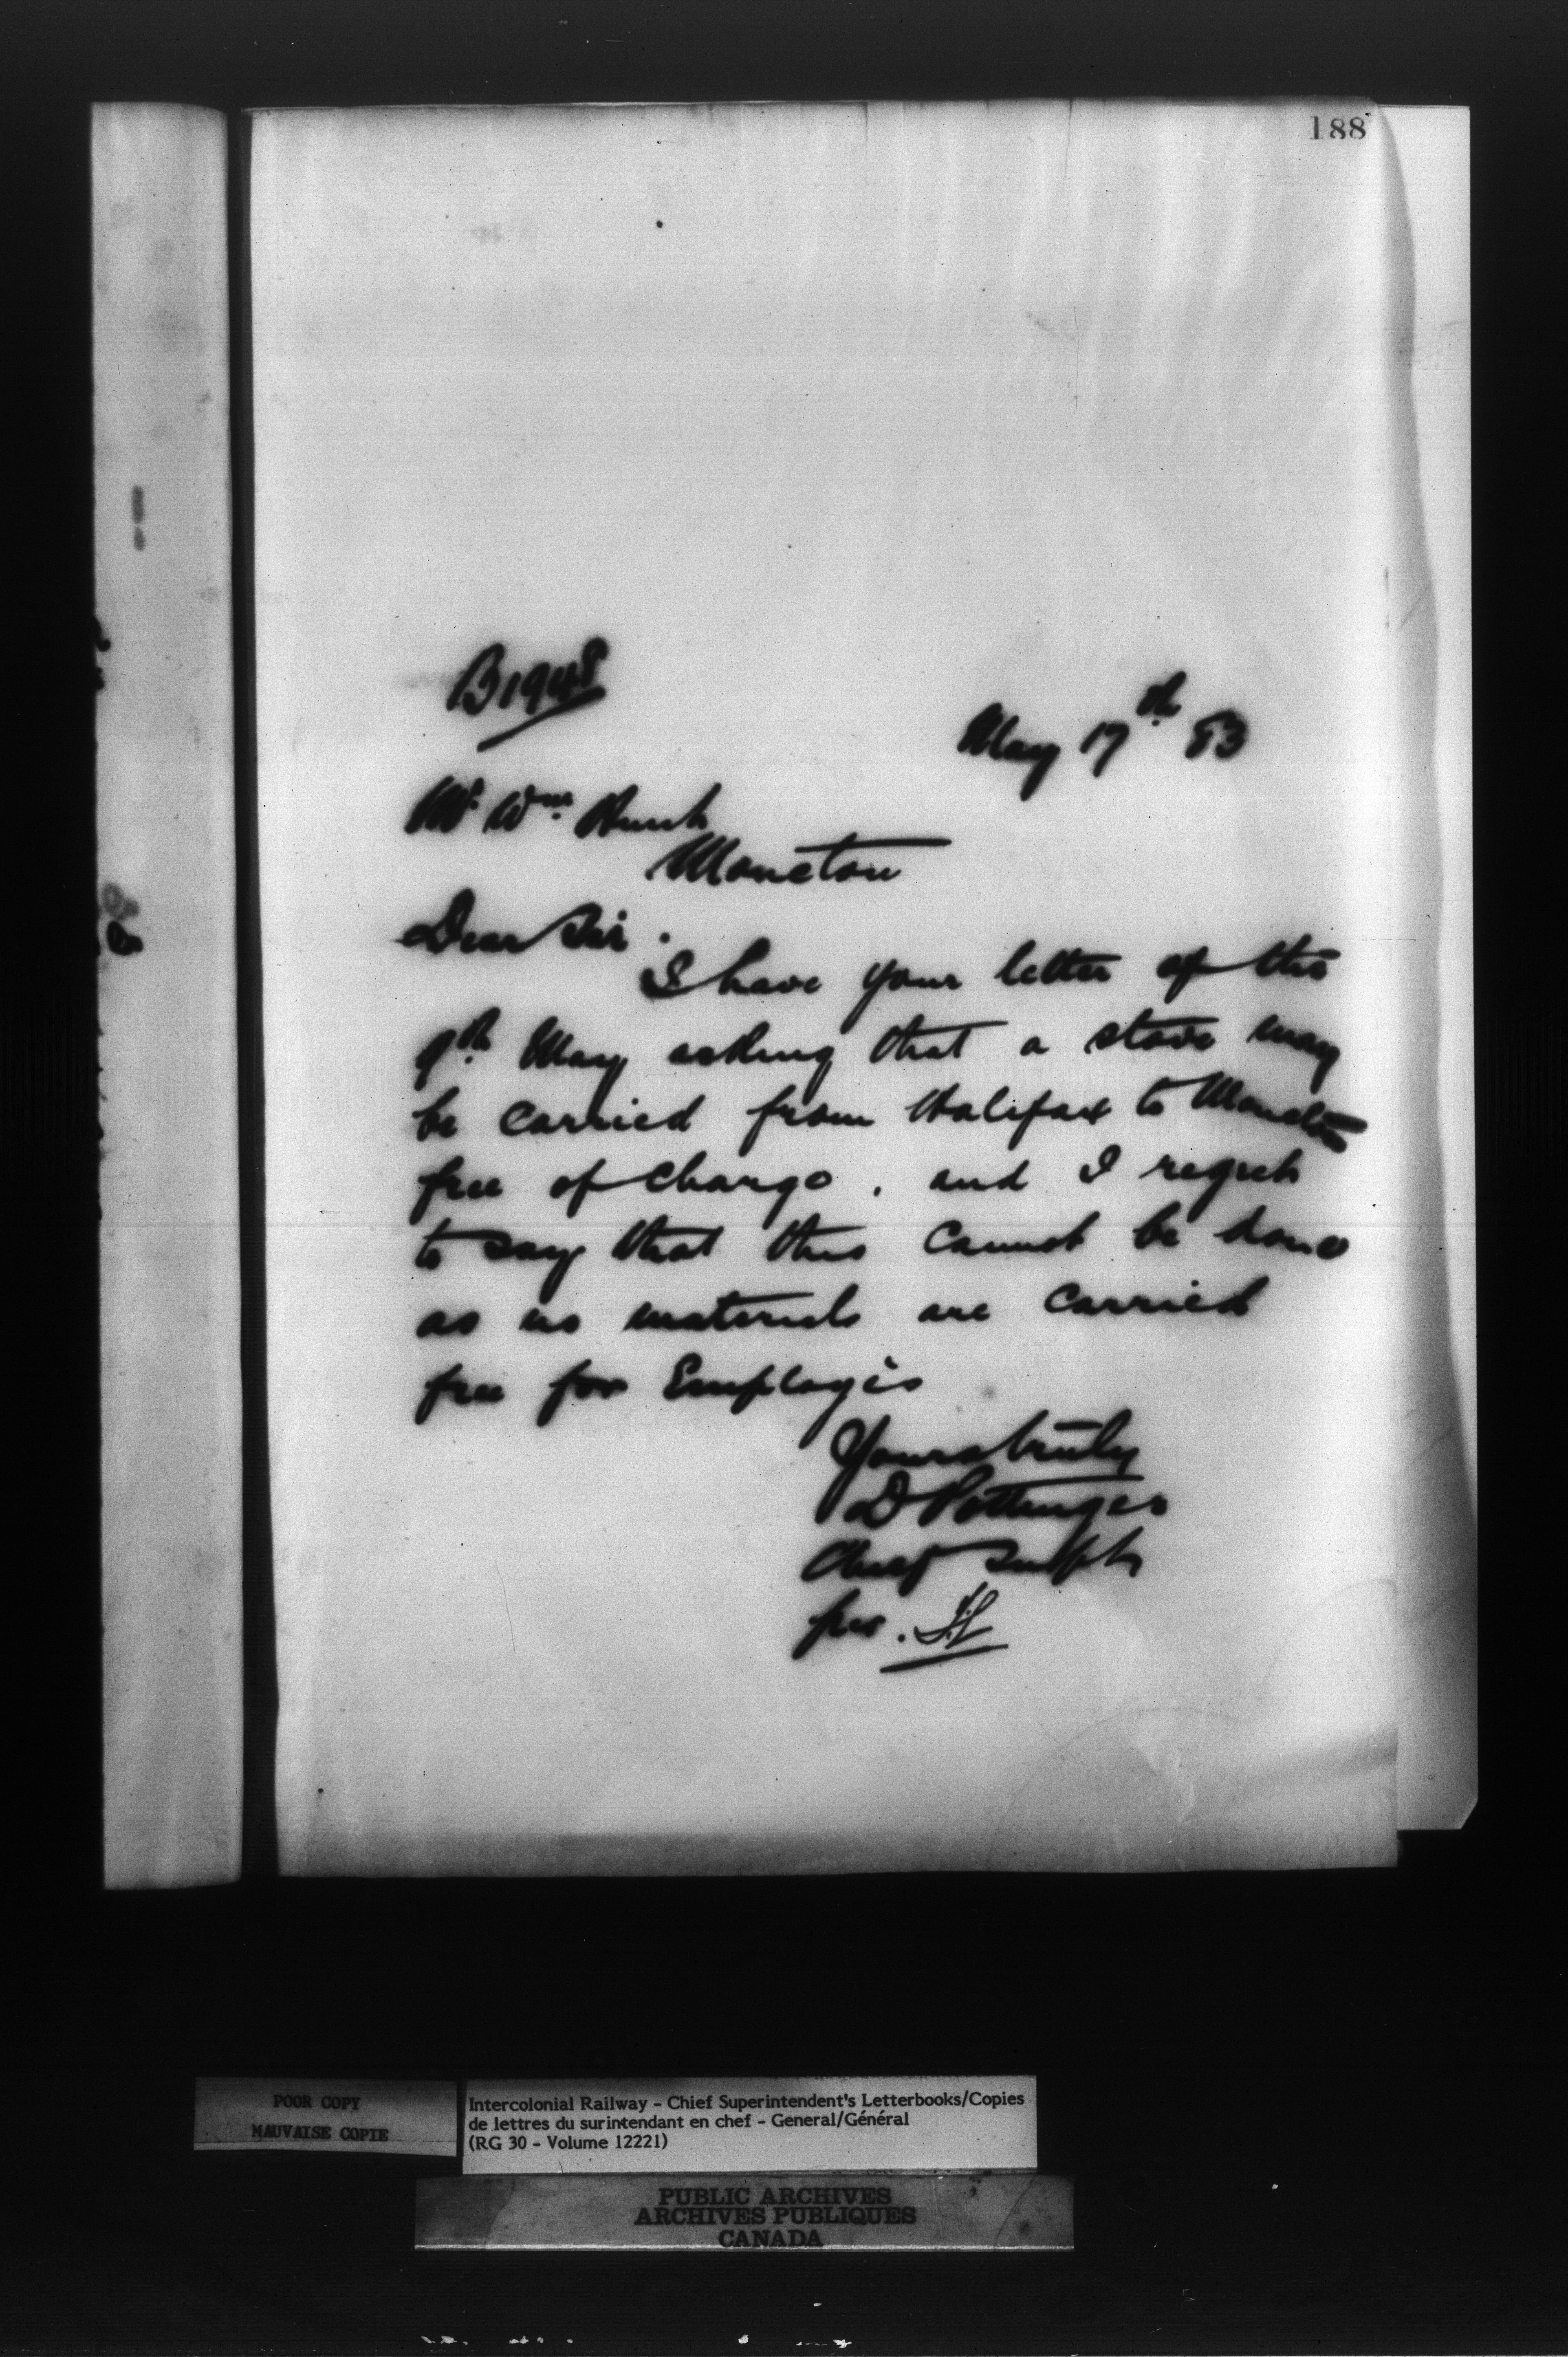 188
B1948
May 17th 83
Mr Wm
Moncton
Dear Sir.
I have your letter of the
9th May asking that a stove may
be carried from Halifax to Moncton
free of charge, and I regret
to say that this cannot be done
as no materials are carried
free for Employés
Yours truly
D Pottinger
Chief Supt
per.
POOR COPY
MAUVAISE COPIE
Intercolonial Railway - Chief Superintendent's Letterbooks/Copies
de lettres du surintendant en chef - General/Général
(RG 30 - Volume 12221)
PUBLIC ARCHIVES
ARCHIVES PUBLIQUES
CANADA